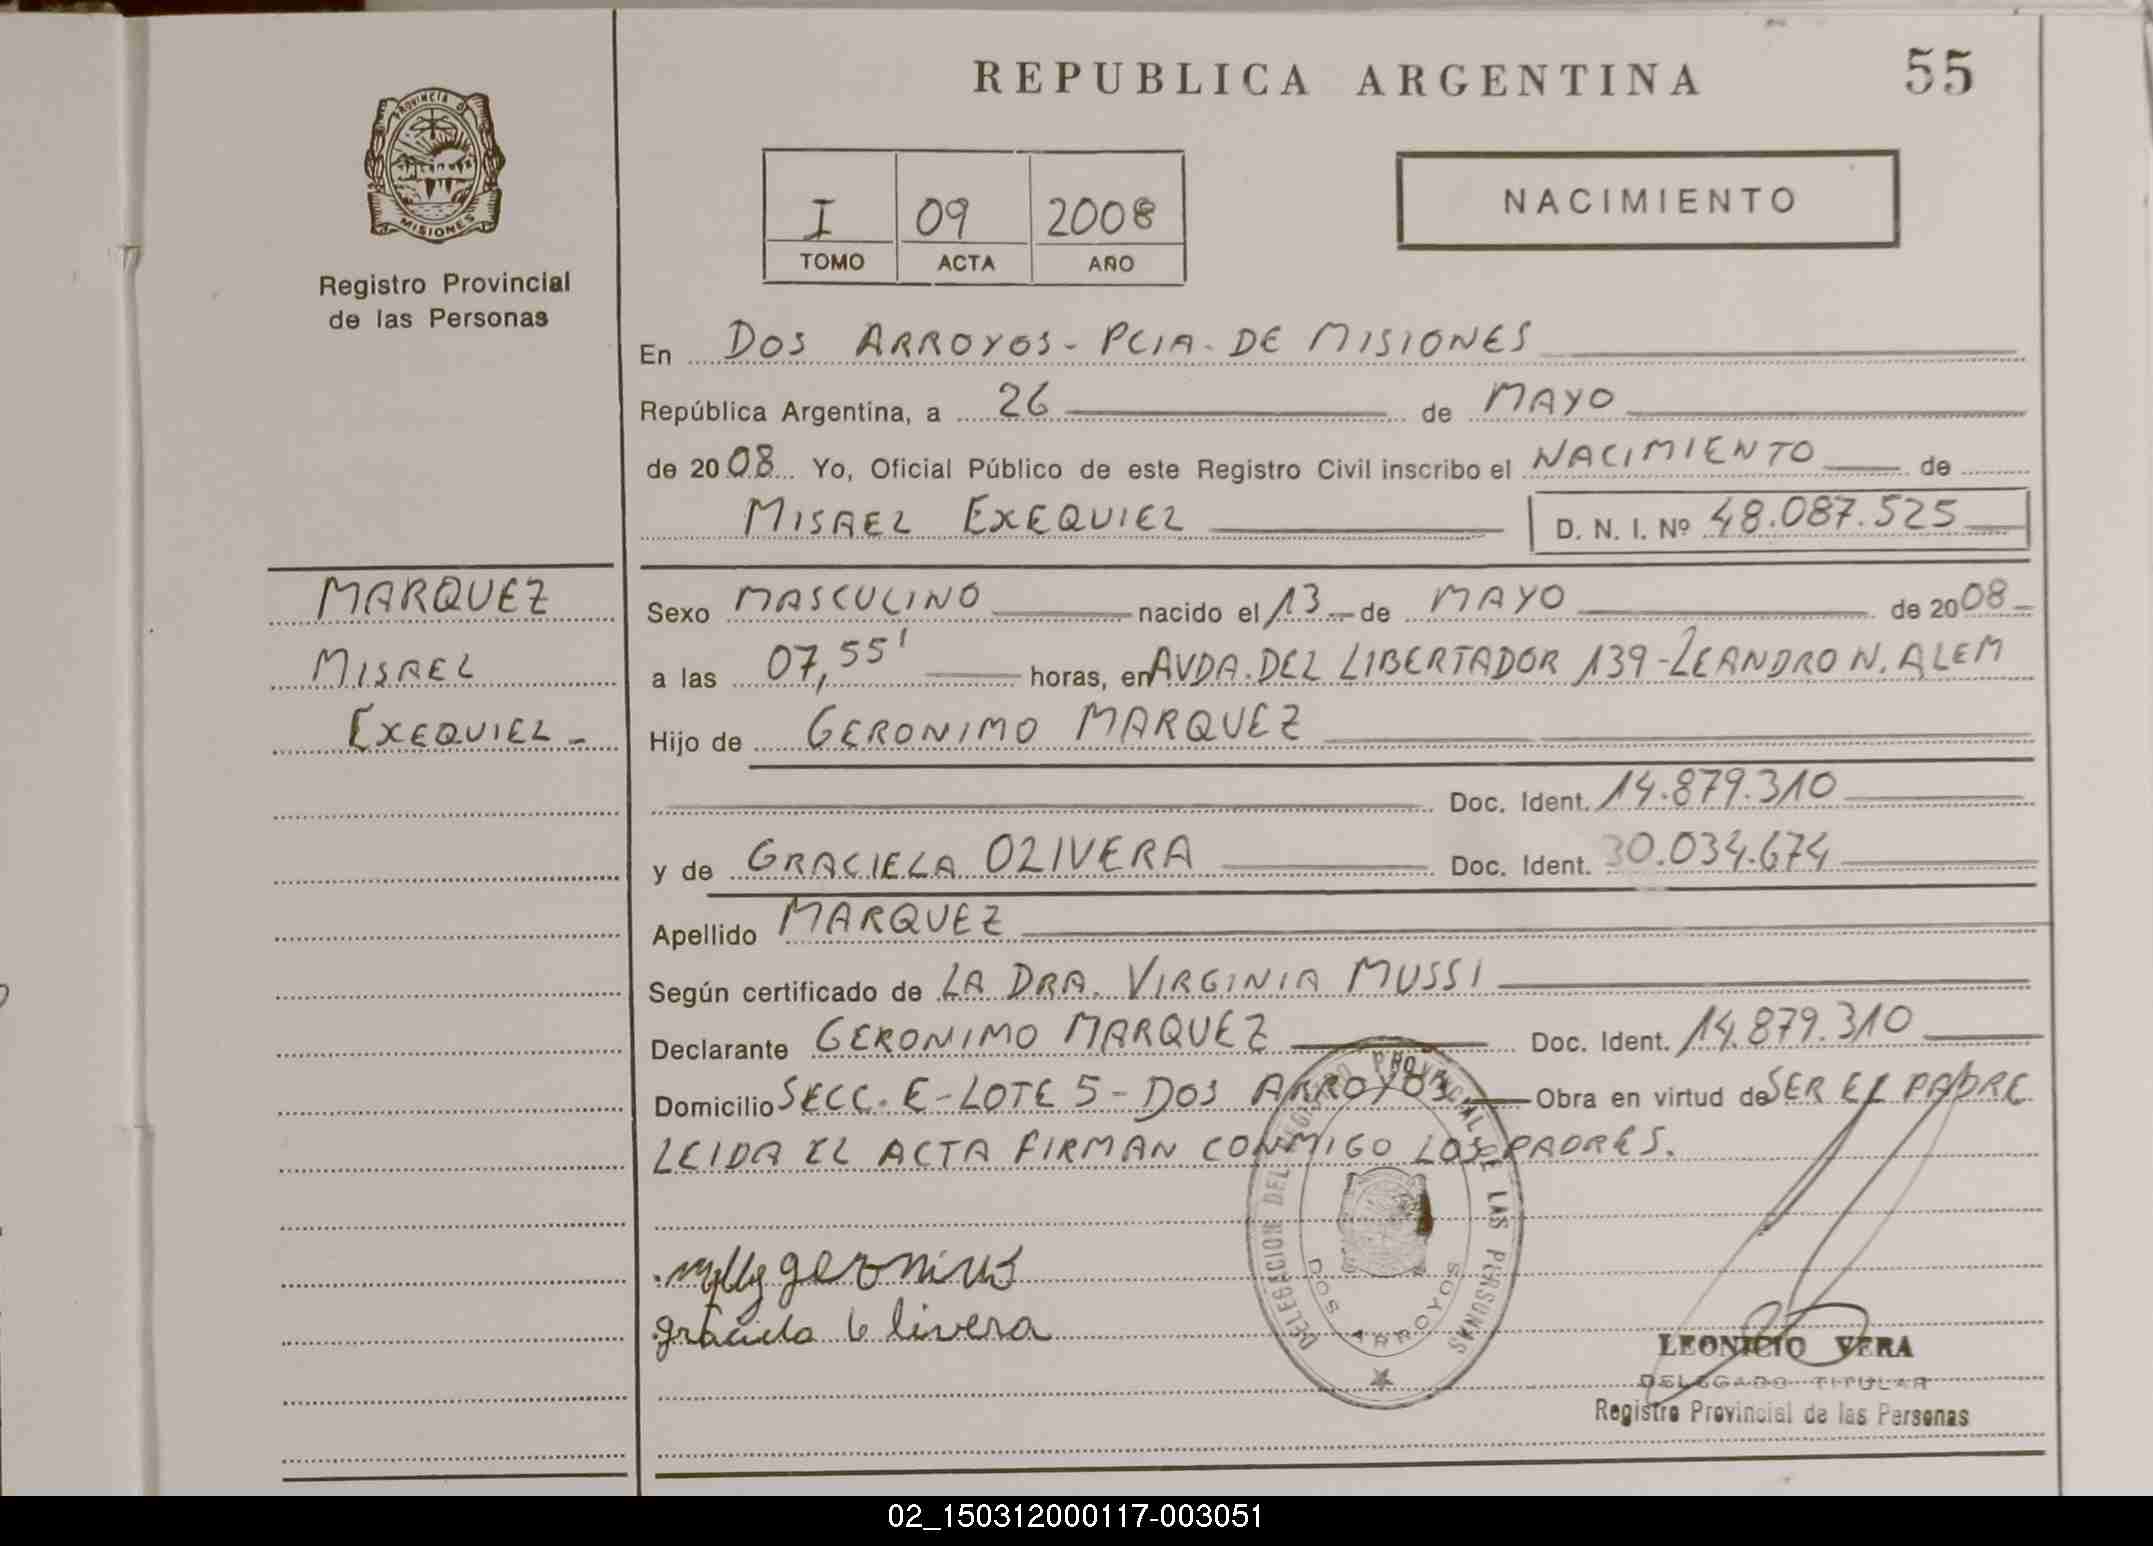 REPUBLICA ARGENTINA 55
PROVINCIA DE MISIONES
Registro Provincial
de las Personas
I 09 2008
TOMO ACTA AÑO
NACIMIENTO
En DOS ARROYOS - PCIA. DE MISIONES
República Argentina, a 26 de MAYO
de 2008 Yo, Oficial Público de este Registro Civil inscribo el NACIMIENTO de
MISAEL EXEQUIEL D. N. I. Nº 48.087.525
MARQUEZ
MISAEL
EXEQUIEL -
Sexo MASCULINO nacido el 13 de MAYO de 2008
a las 07,55' horas, en AVDA. DEL LIBERTADOR 139 - LEANDRO N. ALEM
Hijo de GERONIMO MARQUEZ
Doc. Ident. 14.879.310
y de GRACIELA OLIVERA Doc. Ident. 30.034.674
Apellido MARQUEZ
Según certificado de LA DRA. VIRGINIA MUSSI
Declarante GERONIMO MARQUEZ Doc. Ident. 14.879.310
Domicilio SECC. E - LOTE 5 - DOS ARROYOS Obra en virtud de SER EL PADRE
LEIDA EL ACTA FIRMAN CONMIGO LOS PADRES.
DELEGACION DEL REGISTRO PROVINCIAL DE LAS PERSONAS
DOS ARROYOS
LEONICIO VERA
DELEGADO TITULAR
Registro Provincial de las Personas
02_150312000117-003051